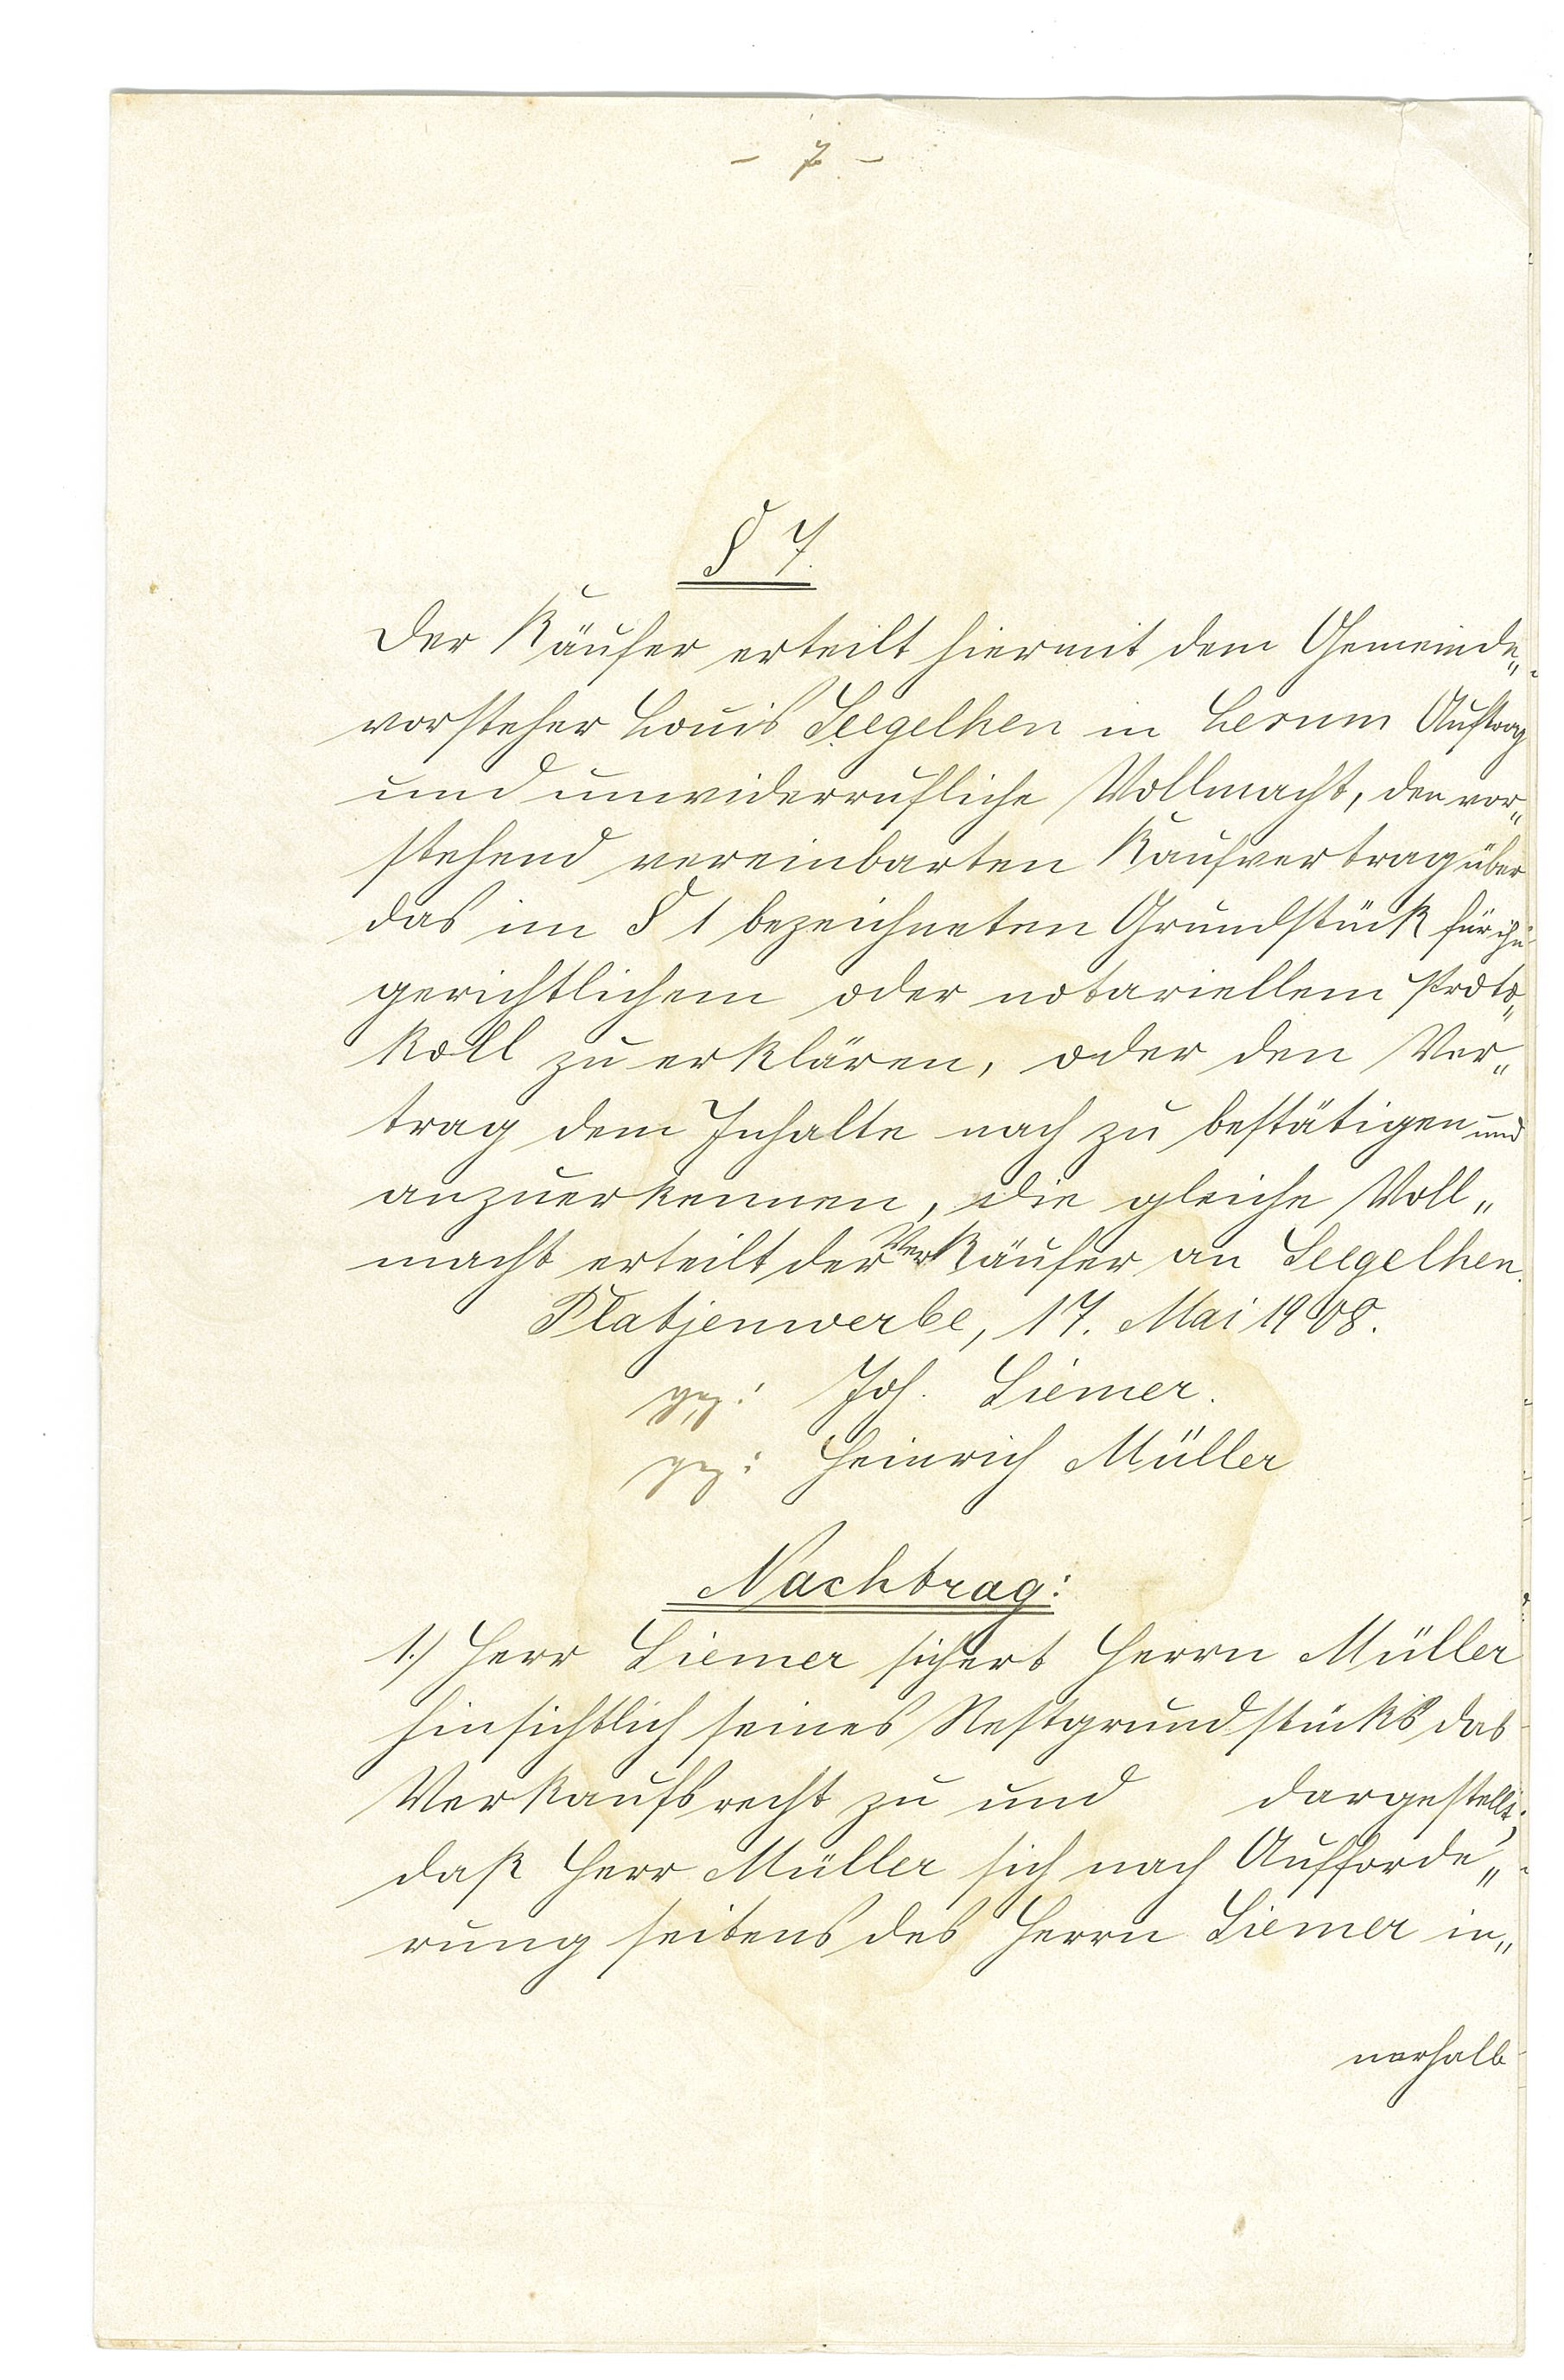 - 7 -
§ 7.
Der Käufer erteilt hiermit dem Gemeinde„
vorsteher Louis Seegelken in Lesum Auftrag
und unwiderrufliche Vollmacht, den vor„
stehend vereinbarten Kaufvertrag über
das im § 1 bezeichneten Grundstück für ihn
gerichtlichem oder notariellem Proto„
koll zu erklären, oder den Ver„
trag dem Inhalte nach zu bestätigen und
anzuerkennen, die gleiche Voll„
macht erteilt der Verkäufer an Seegelken.
Platjenwerbe, 17. Mai 1908.
gez: Joh. Siemer.
gez: Heinrich Müller
Nachtrag:
1.) Herr Siemer sichert Herrn Müller
hinsichtlich seines Restgrundstücks das
Verkaufsrecht zu und dargestellt,
daß Herr Müller sich nach Aufforde„
rung seitens des Herrn Siemer in„
nerhalb